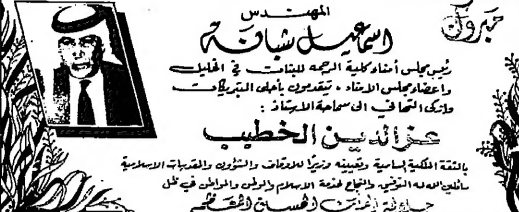 مبروك
المهندس
اسماعيل شبانة
رئيس مجلس أمناء كلية الرحمه للبنات في الخليل
واعضاء مجلس الامناء ، يتقدمون بأحلى التبريكات
وازكى التهاني الى سماحة الاستاذ :
عز الدين الخطيب
بالثقة الملكية السامية وتعيينه وزيرًا للاوقاف والشؤون والمقدسات الاسلامية
سائلين الله له التوفيق والنجاح لخدمة الاسلام والوطن والمواطن في ظل
جلالة الحسين المعظم